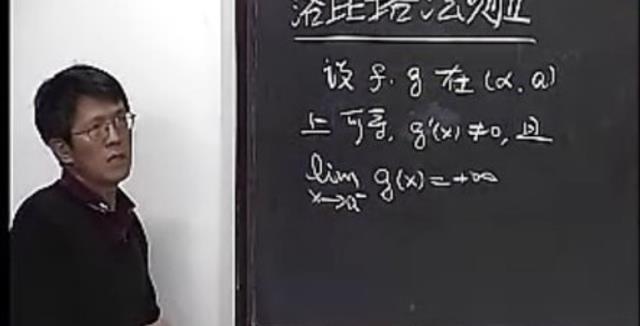 洛比塔法则II
设 f, g 在 (α, a)
上可导, g'(x) ≠ 0, 且
lim x→a⁻ g(x) = +∞